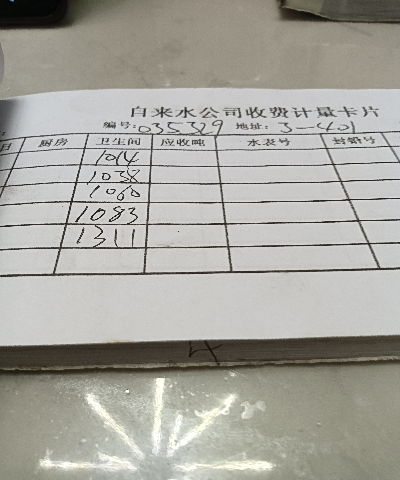 自来水公司收费计量卡片
编号:035329 地址:3-401
日 厨房 卫生间 应收吨 水表号 封铅号
1014
1038
1060
1083
1311